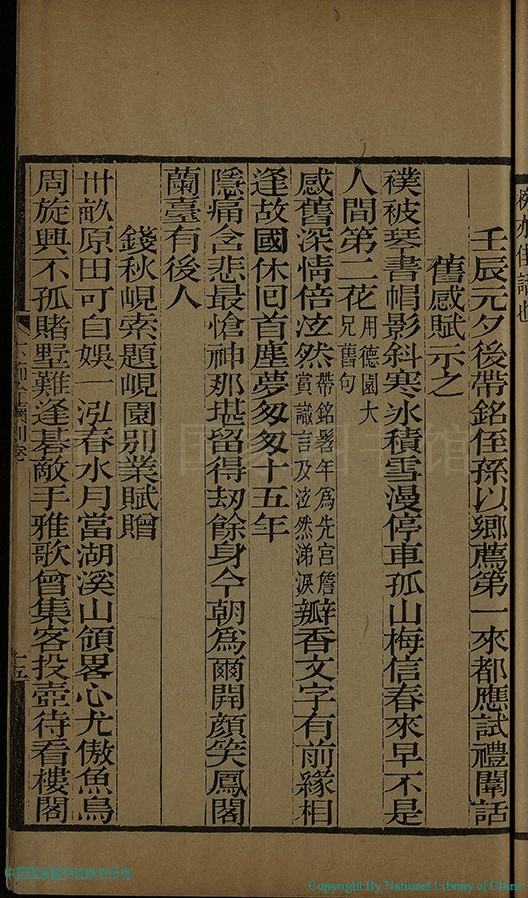 壬辰元夕後帶銘侄孫以鄉薦第一來都應試禮闈話
舊感賦示之
襆被琴書帽影斜寒氷積雪漫停車孤山梅信春來早不是
人間第二花用德園大兄舊句
感舊深情倍泫然帶銘髫年爲先宮詹賞識言及泫然涕淚瓣香文字有前緣相
逢故國休回首塵夢匆匆十五年
隱痛含悲最愴神那堪留得刼餘身今朝爲爾開顏笑鳳閣
蘭臺有後人
錢秋峴索題峴園别業賦贈
卅畝原田可自娛一泓春水月當湖溪山領畧心尤傲魚鳥
周旋興不孤賭墅難逢碁敵手雅歌曾集客投壺待看樓閣
十五
中国国家图书馆
Copyright By National Library of China